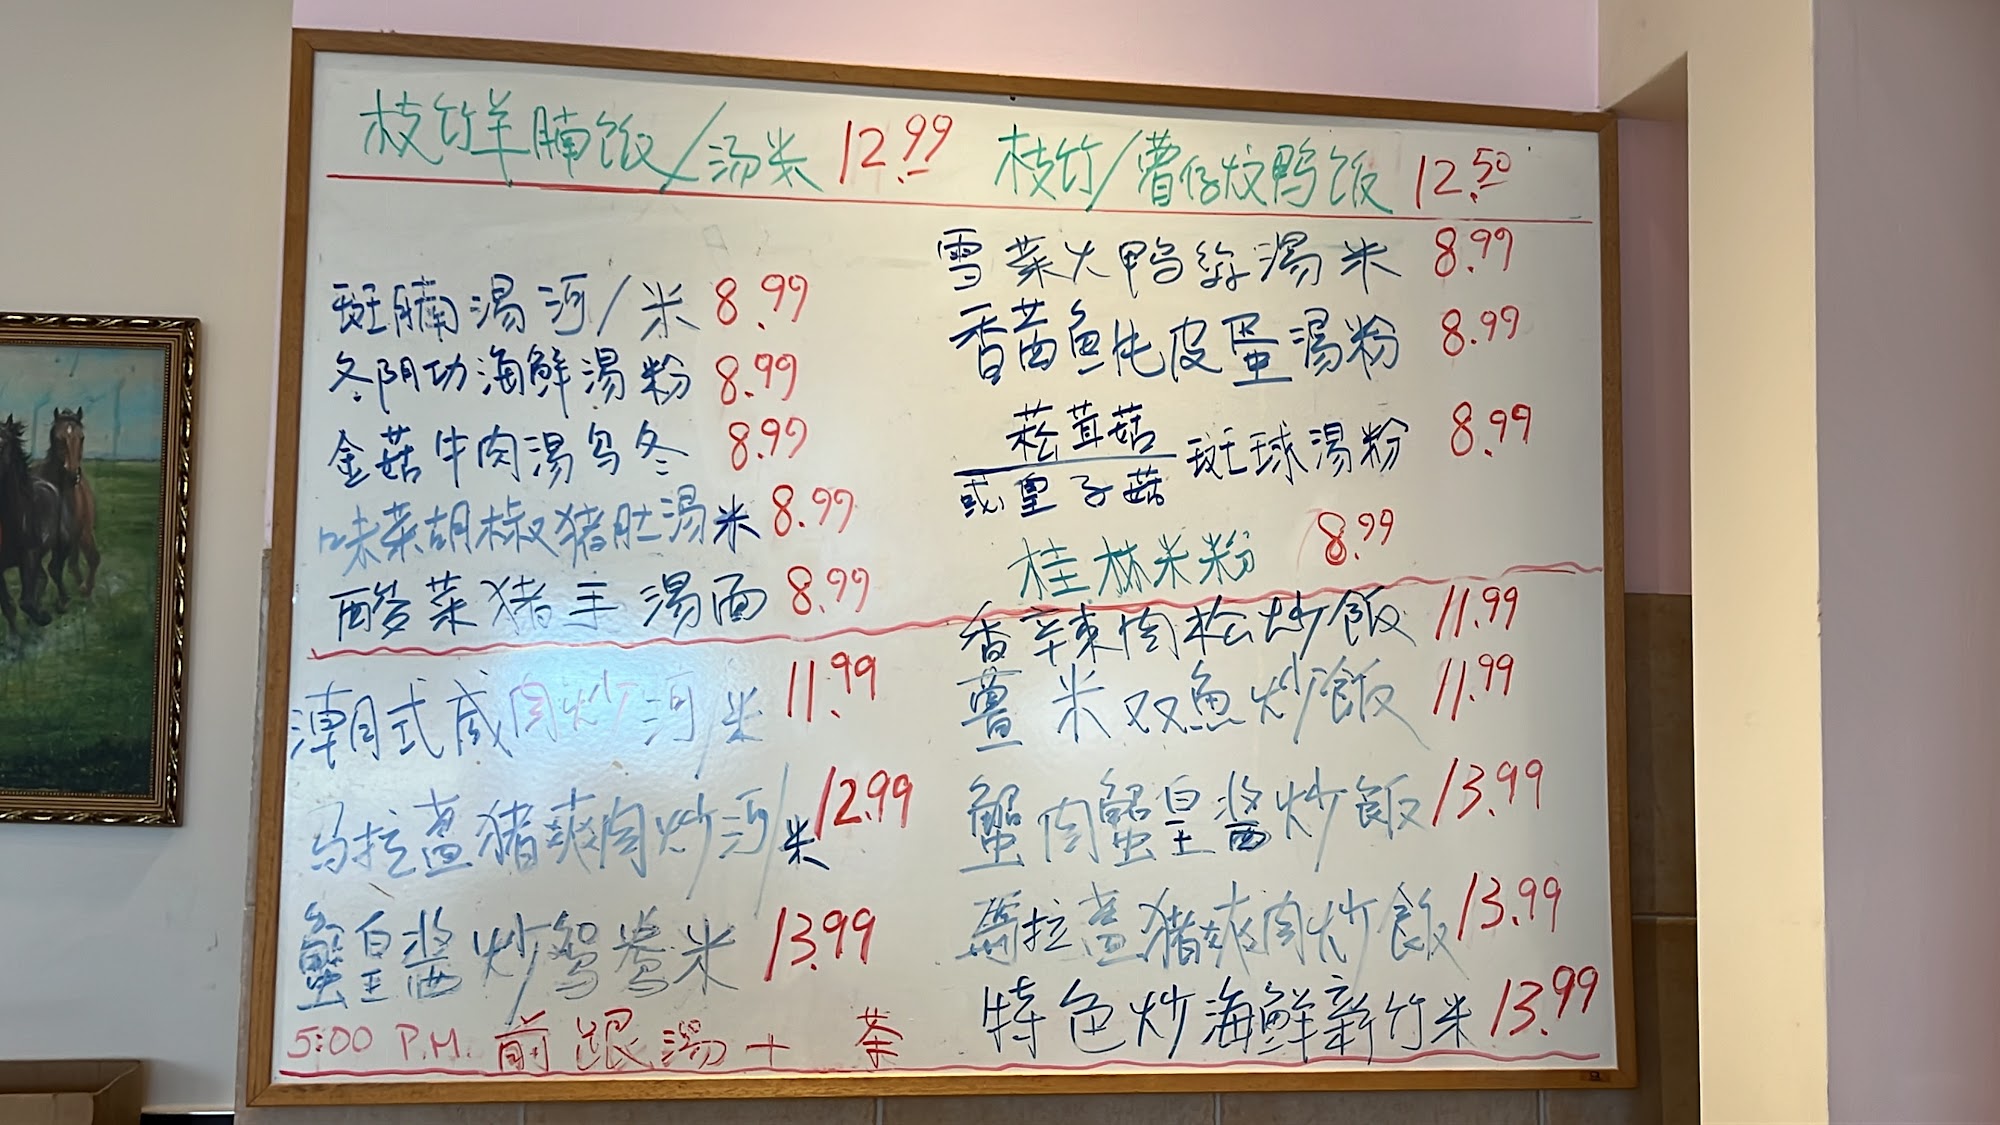 枝竹羊腩饭/汤米 12.99
枝竹/曹仔炆鸭饭 12.50
斑腩湯河/米 8.99
冬阴功海鮮湯粉 8.99
金菇牛肉湯乌冬 8.99
味菜胡椒猪肚湯米 8.99
酸菜猪手湯面 8.99
雪菜火鸭絲湯米 8.99
香茜魚乇皮蛋湯粉 8.99
菘茸菇
或皇子菇 斑球湯粉 8.99
桂林米粉 8.99
潮式咸肉炒河/米 11.99
马拉盞猪爽肉炒河/米 12.99
蟹皇醬炒鸳鸯米 13.99
香辣肉松炒飯 11.99
薑米双魚炒飯 11.99
蟹肉蟹皇醬炒飯 13.99
馬拉盞猪爽肉炒飯 13.99
特色炒海鮮新竹米 13.99
5:00 P.M. 前跟湯+茶